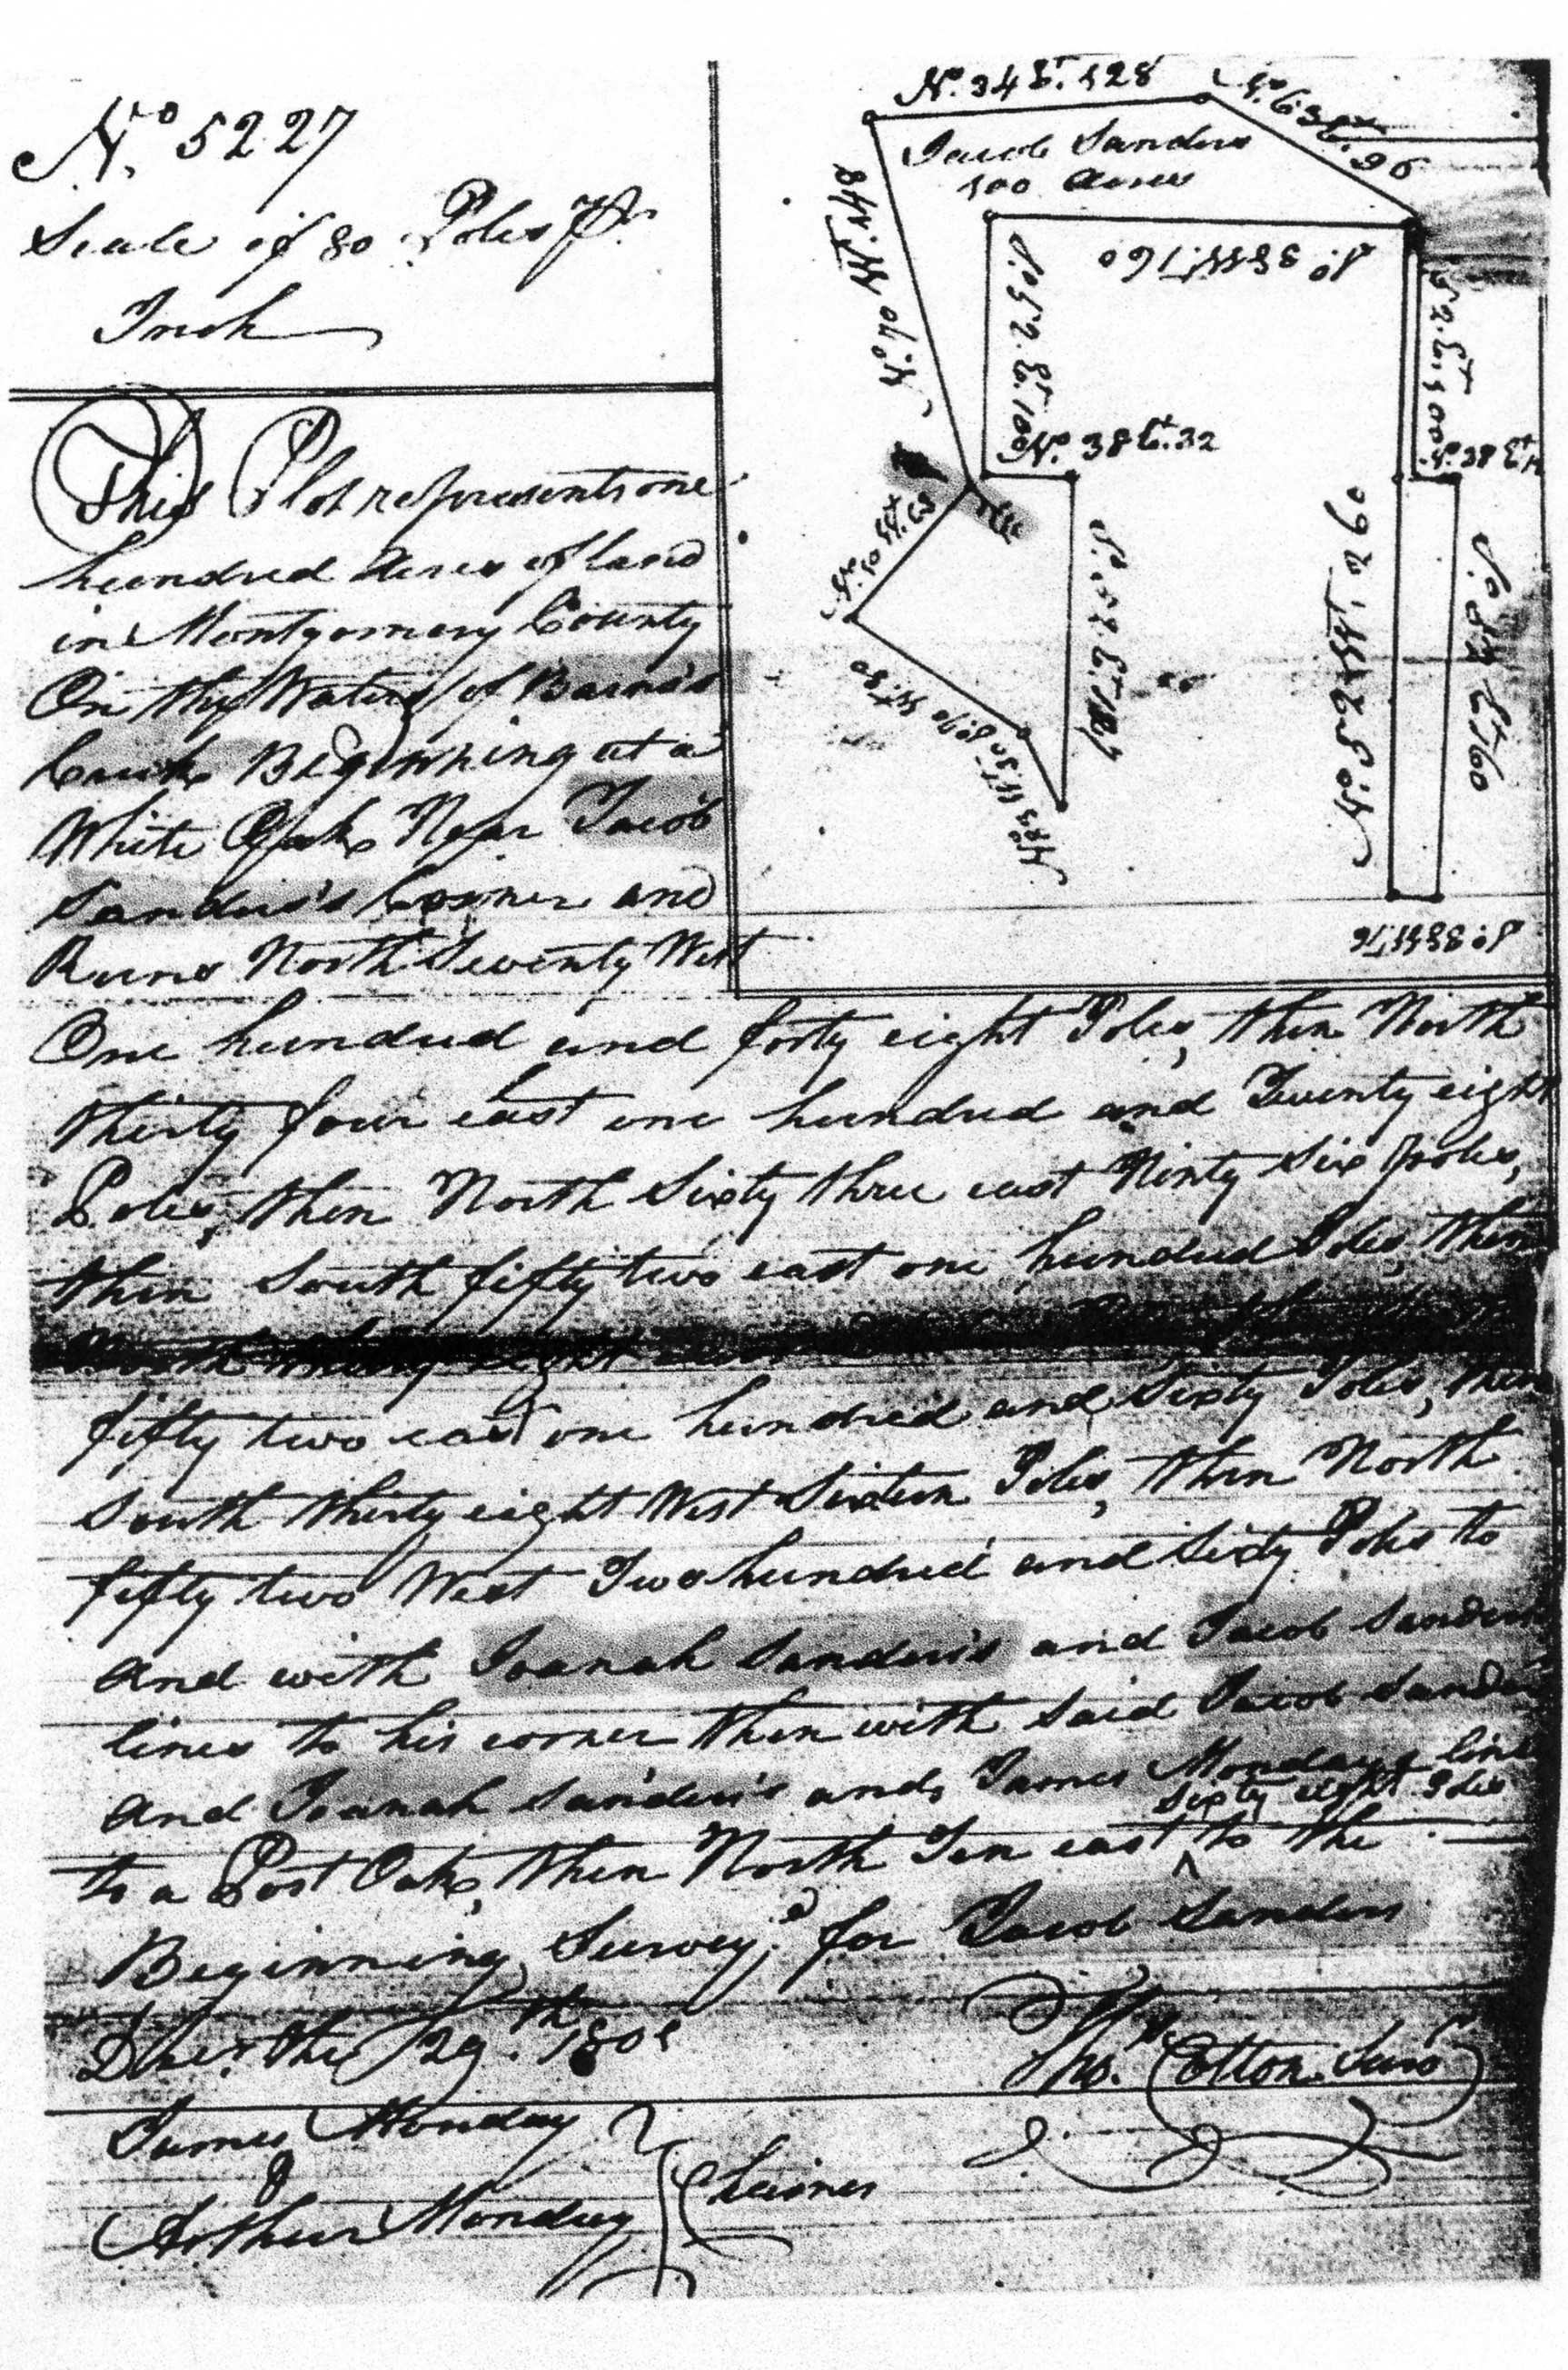 No. 5227
Scale of 80 Poles Pr.
Inch
No. 34 Et. 128
No. 63 Et. 96
Jacob Sanders
100 Acres
No. 70 Wt. 148
So. 38 Wt 160
So. 52. Et 100
So. 52. Et 100
No. 38 Et. 32
No. 38 Et
So. 52. Et
So. 52 Et 160
No. 52 Wt. 260
So. 38 Wt 16
This Plot represents one
hundred Acres of land
in Montgomery County
On the Waters of Barns's
Creek Beginning at a
White Oak Near Jacob
Sanders's Corner and
Runs North Seventy West
One hundred and forty eight Poles, then North
thirty four east one hundred and Twenty eight
Poles, then North Sixty three east Ninty Six Poles,
then South fifty two east one hundred Poles, then
North thirty eight east
fifty two east one hundred and Sixty Poles, then
South thirty eight West Sixteen Poles, then North
fifty two West Two hundred and Sixty Poles to
and with Joanah Sanders's and Jacob Sanders
lines to his corner then with said Jacob Sanders
and Joanah Sanders's and James Mondays line
sixty eight Poles
to a Post Oak, then North Ten east ^ to the
Beginning, Survey,d for Jacob Sanders
Decr. the 29th.
Thos. Cotton Survr
James Monday
&
Arthur Monday
Chainers